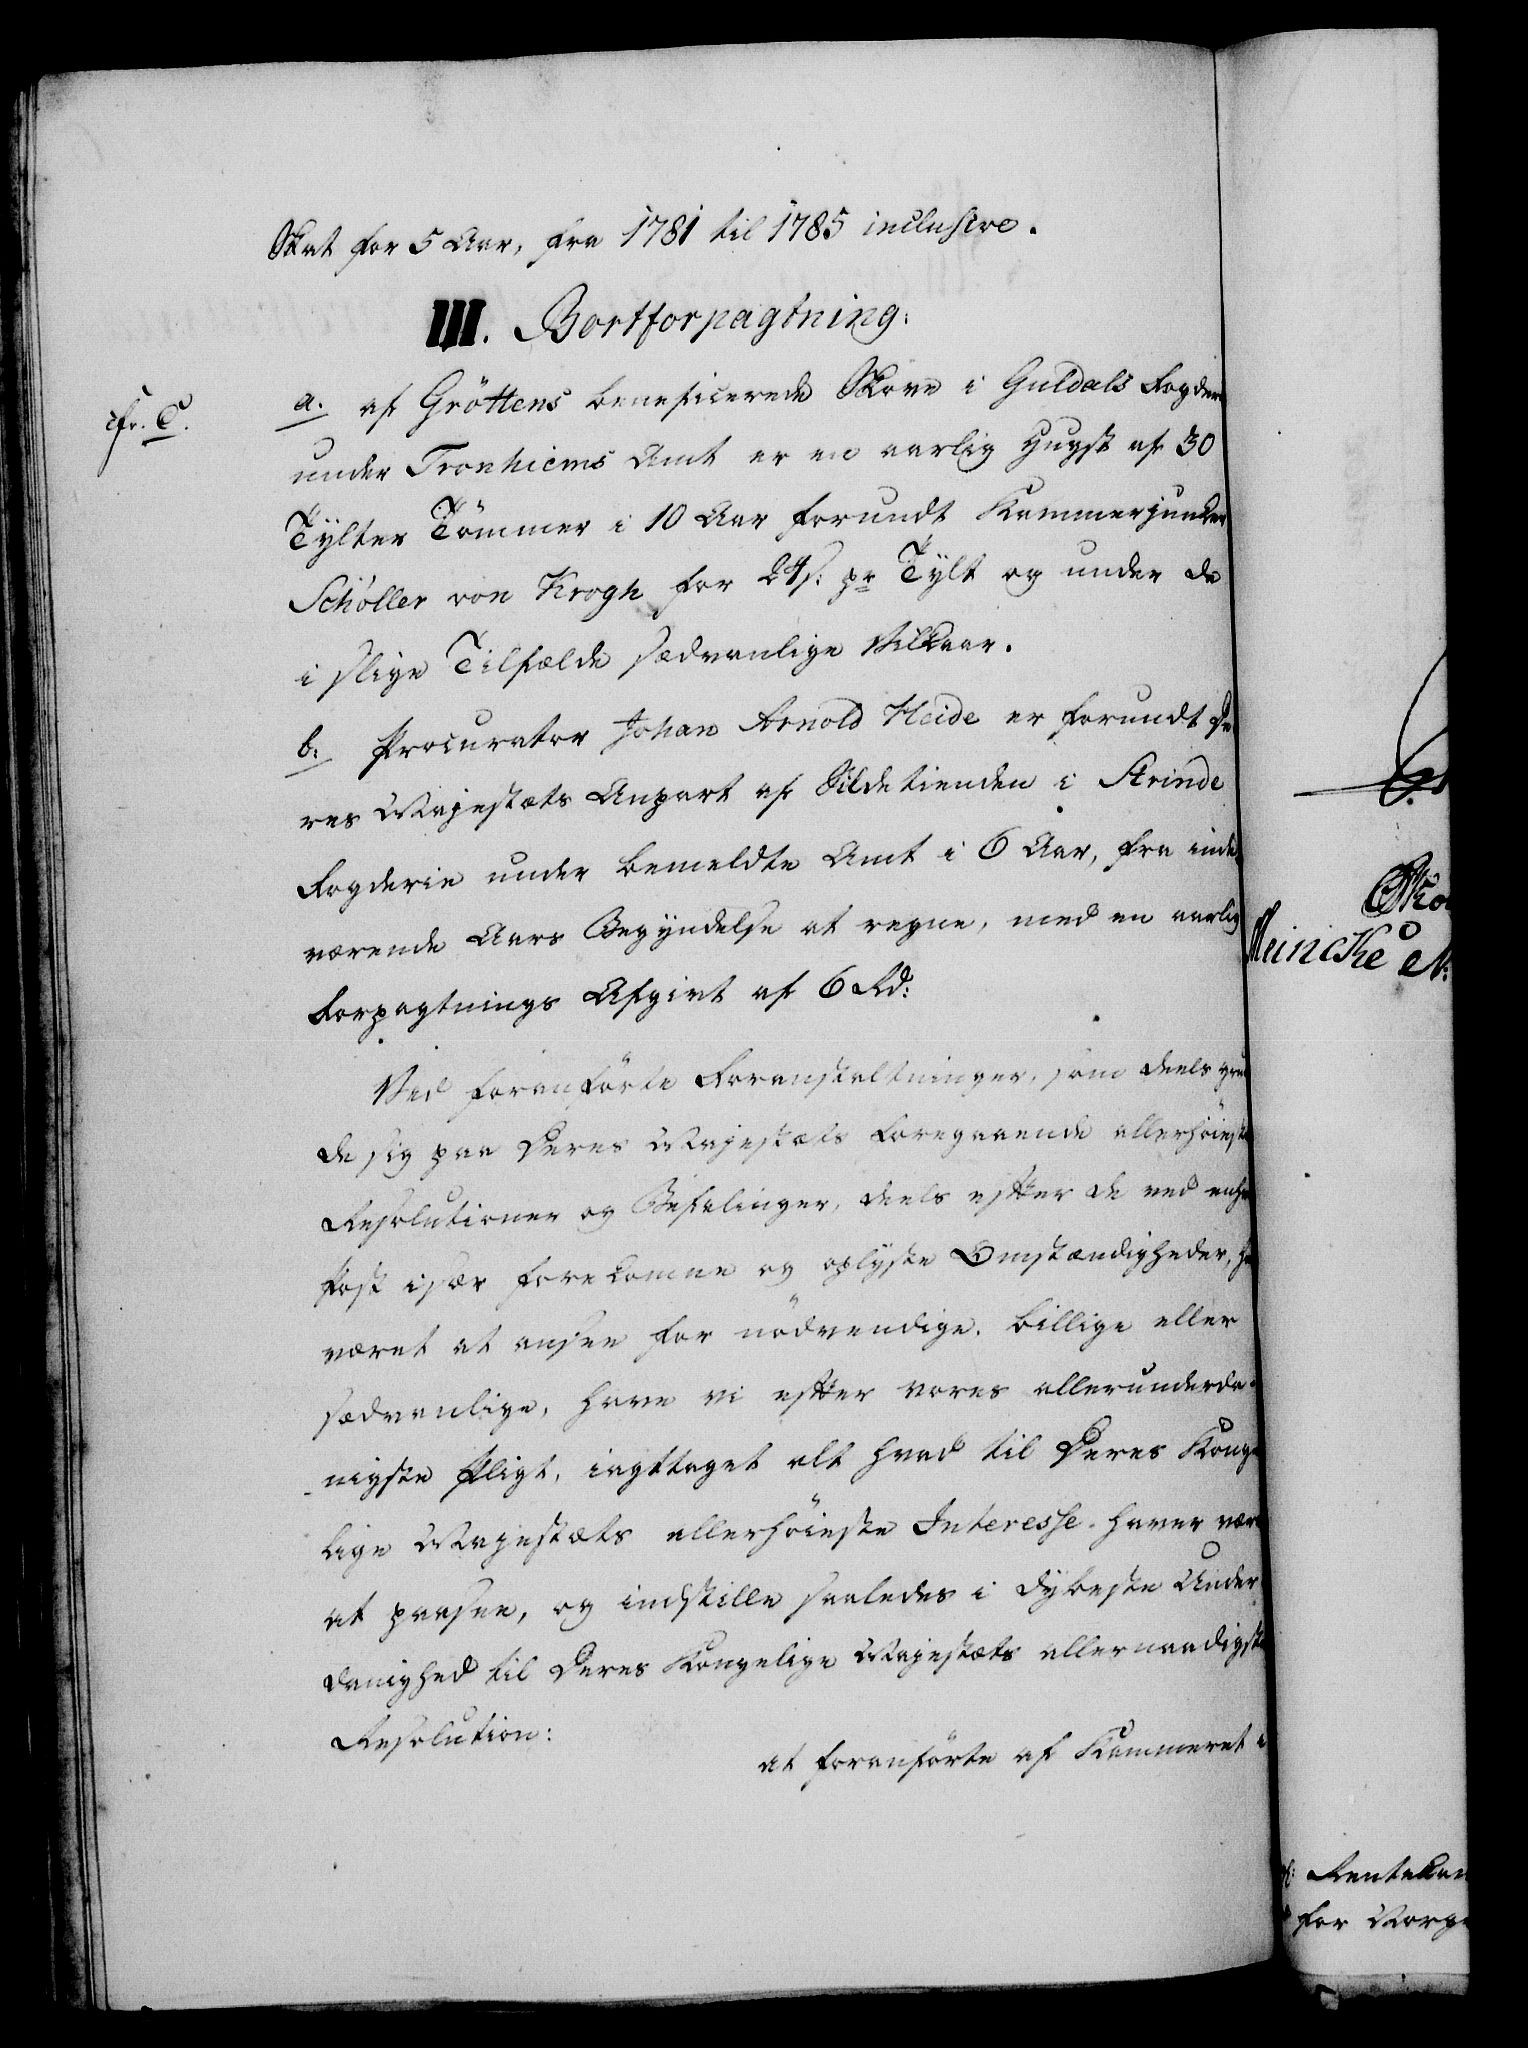 Skat for 5 Aar, fra 1781 til 1785 inclusive.
III. Bortforpagtning:
cfr. C.
a. af Gröttens beneficerede Skove i Guldals Fogderi
under Tronhiems Amt er en aarlig Hugst af 30
Tylter Tömmer i 10 Aar forundt Kammerjunker
Schöller von Krogh for 24 s: pr Tylt og under de
i slige Tilfælde sædvanlige Vilkaar.
b: Procurator Johan Arnold Heide er forundt De
res Majestæts Anpart af Sildetienden i Strinde
Fogderie under bemeldte Amt i 6 Aar, fra inde
værende Aars Begyndelse at regne, med en aarlig
Forpagtnings Afgivt af 6 Rd:
Ved foranförte Foranstaltninger, som deels grun
de sig paa Deres Majestæts foregaaende allerhöieste
Resolutioner og Befalinger, deels efter de ved enhver
Post især forekomne og oplyste Omstændigheder, ha
været at ansee for nödvendige, billige eller
sædvanlige, have vi efter vores allerunderda-
nigste Pligt, iagttaget alt hvad til Deres Konge
lige Majestæts allerhöieste Interesse haver været
at paasee, og indstille saaledes i dybeste Under
danighed til Deres Kongelige Majestæts allernaadigste
Resolution:
at foranförte af Kammeret
Meincke
Rentekam
for Norge